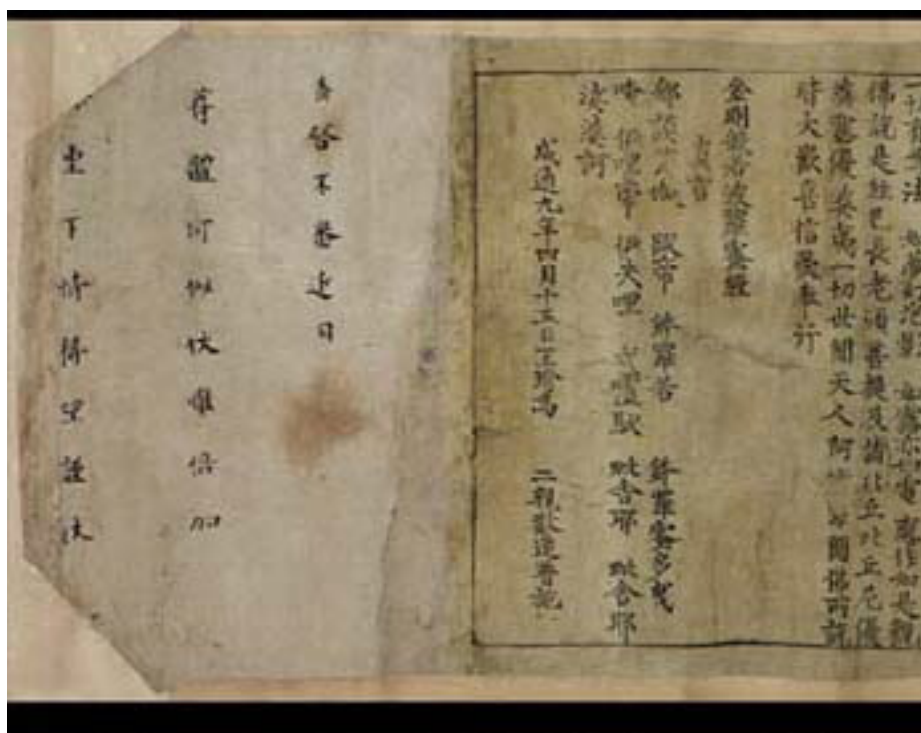 一切有為法 如夢幻泡影 如露亦如電 應作如是觀
佛說是經已長老須菩提及諸比丘比丘尼優
婆塞優婆夷一切世間天人阿修羅聞佛所說
皆大歡喜信受奉行
金剛般若波羅蜜經
真言
那謨薄伽 跋帝 鉢羅若 鉢羅蜜多曳
唵 伊哩帝 伊失哩 戍嚧馱 毗舍耶 毗舍耶
娑婆訶
咸通九年四月十五日王玠為 二親敬造普施
啓不審近日
尊體何似伏惟倍加
下情 望謹狀